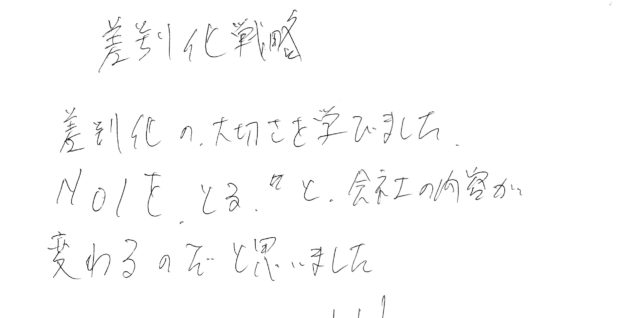 差別化戦略
差別化の、大切さを学びました.
NO1を、とる、"と、会社の内容が
変わるのだと思いました